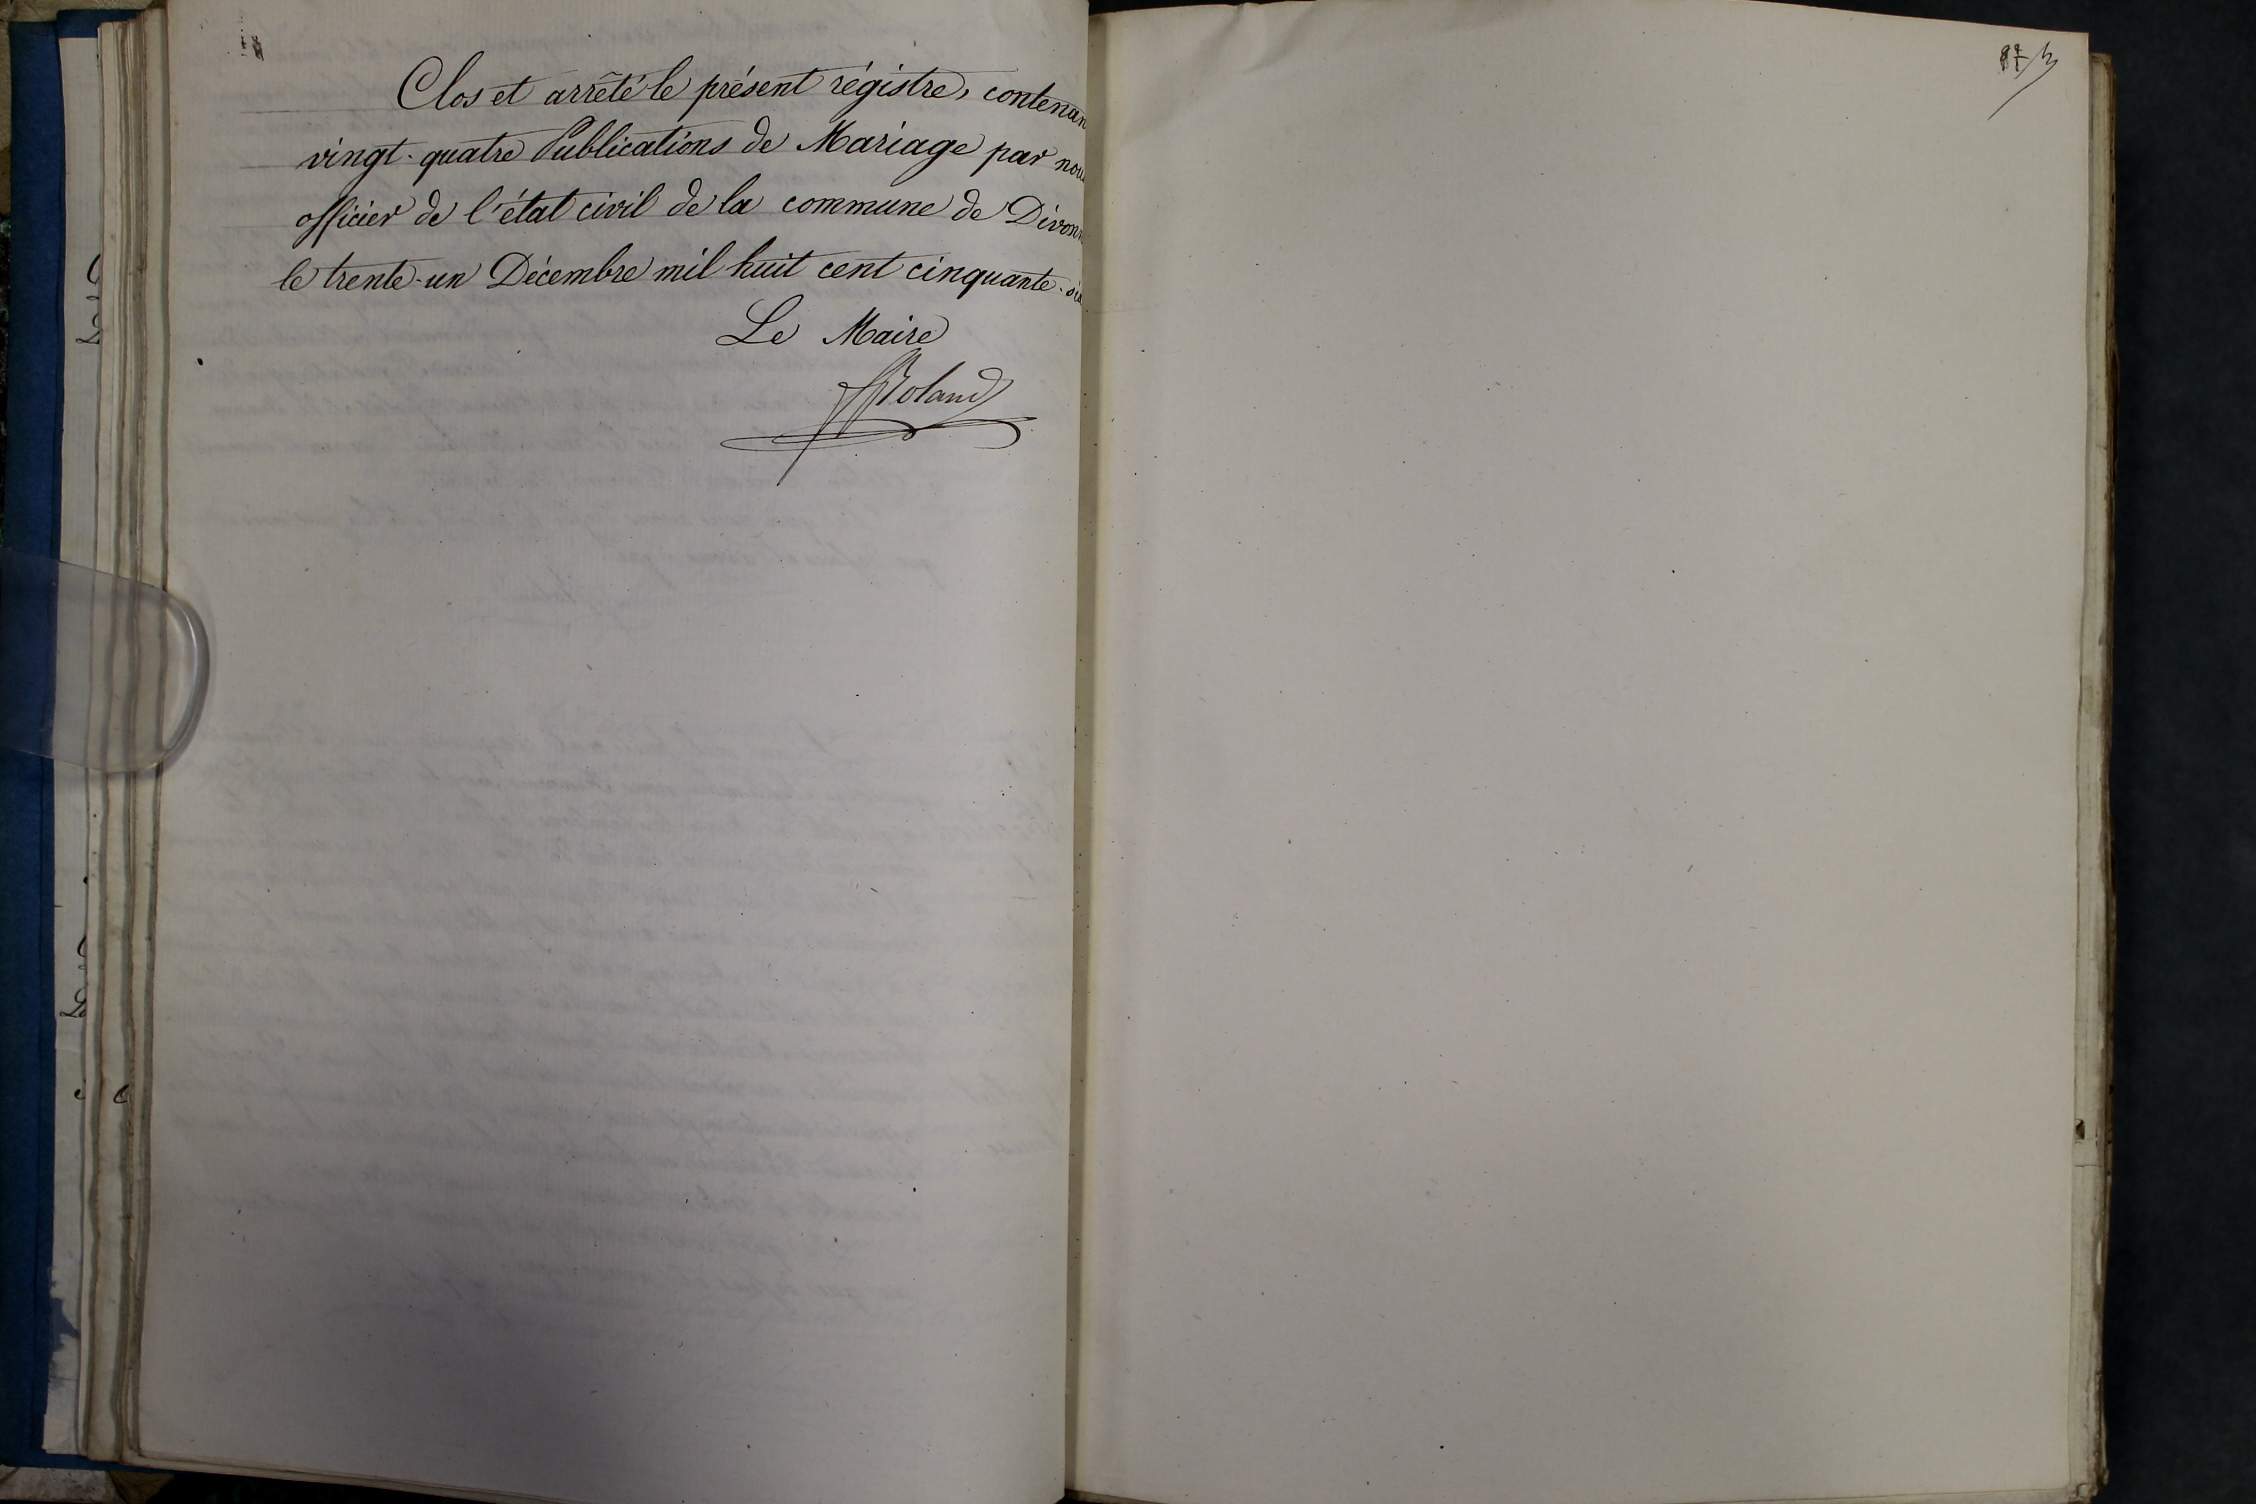 Clos et arrêté le présent régistre, contenan
vingt-quatre Publications de Mariage par nou
officier de l'état civil de la commune de Divonn
le trente-un Décembre mil huit cent cinquante-six
Le Maire
Roland